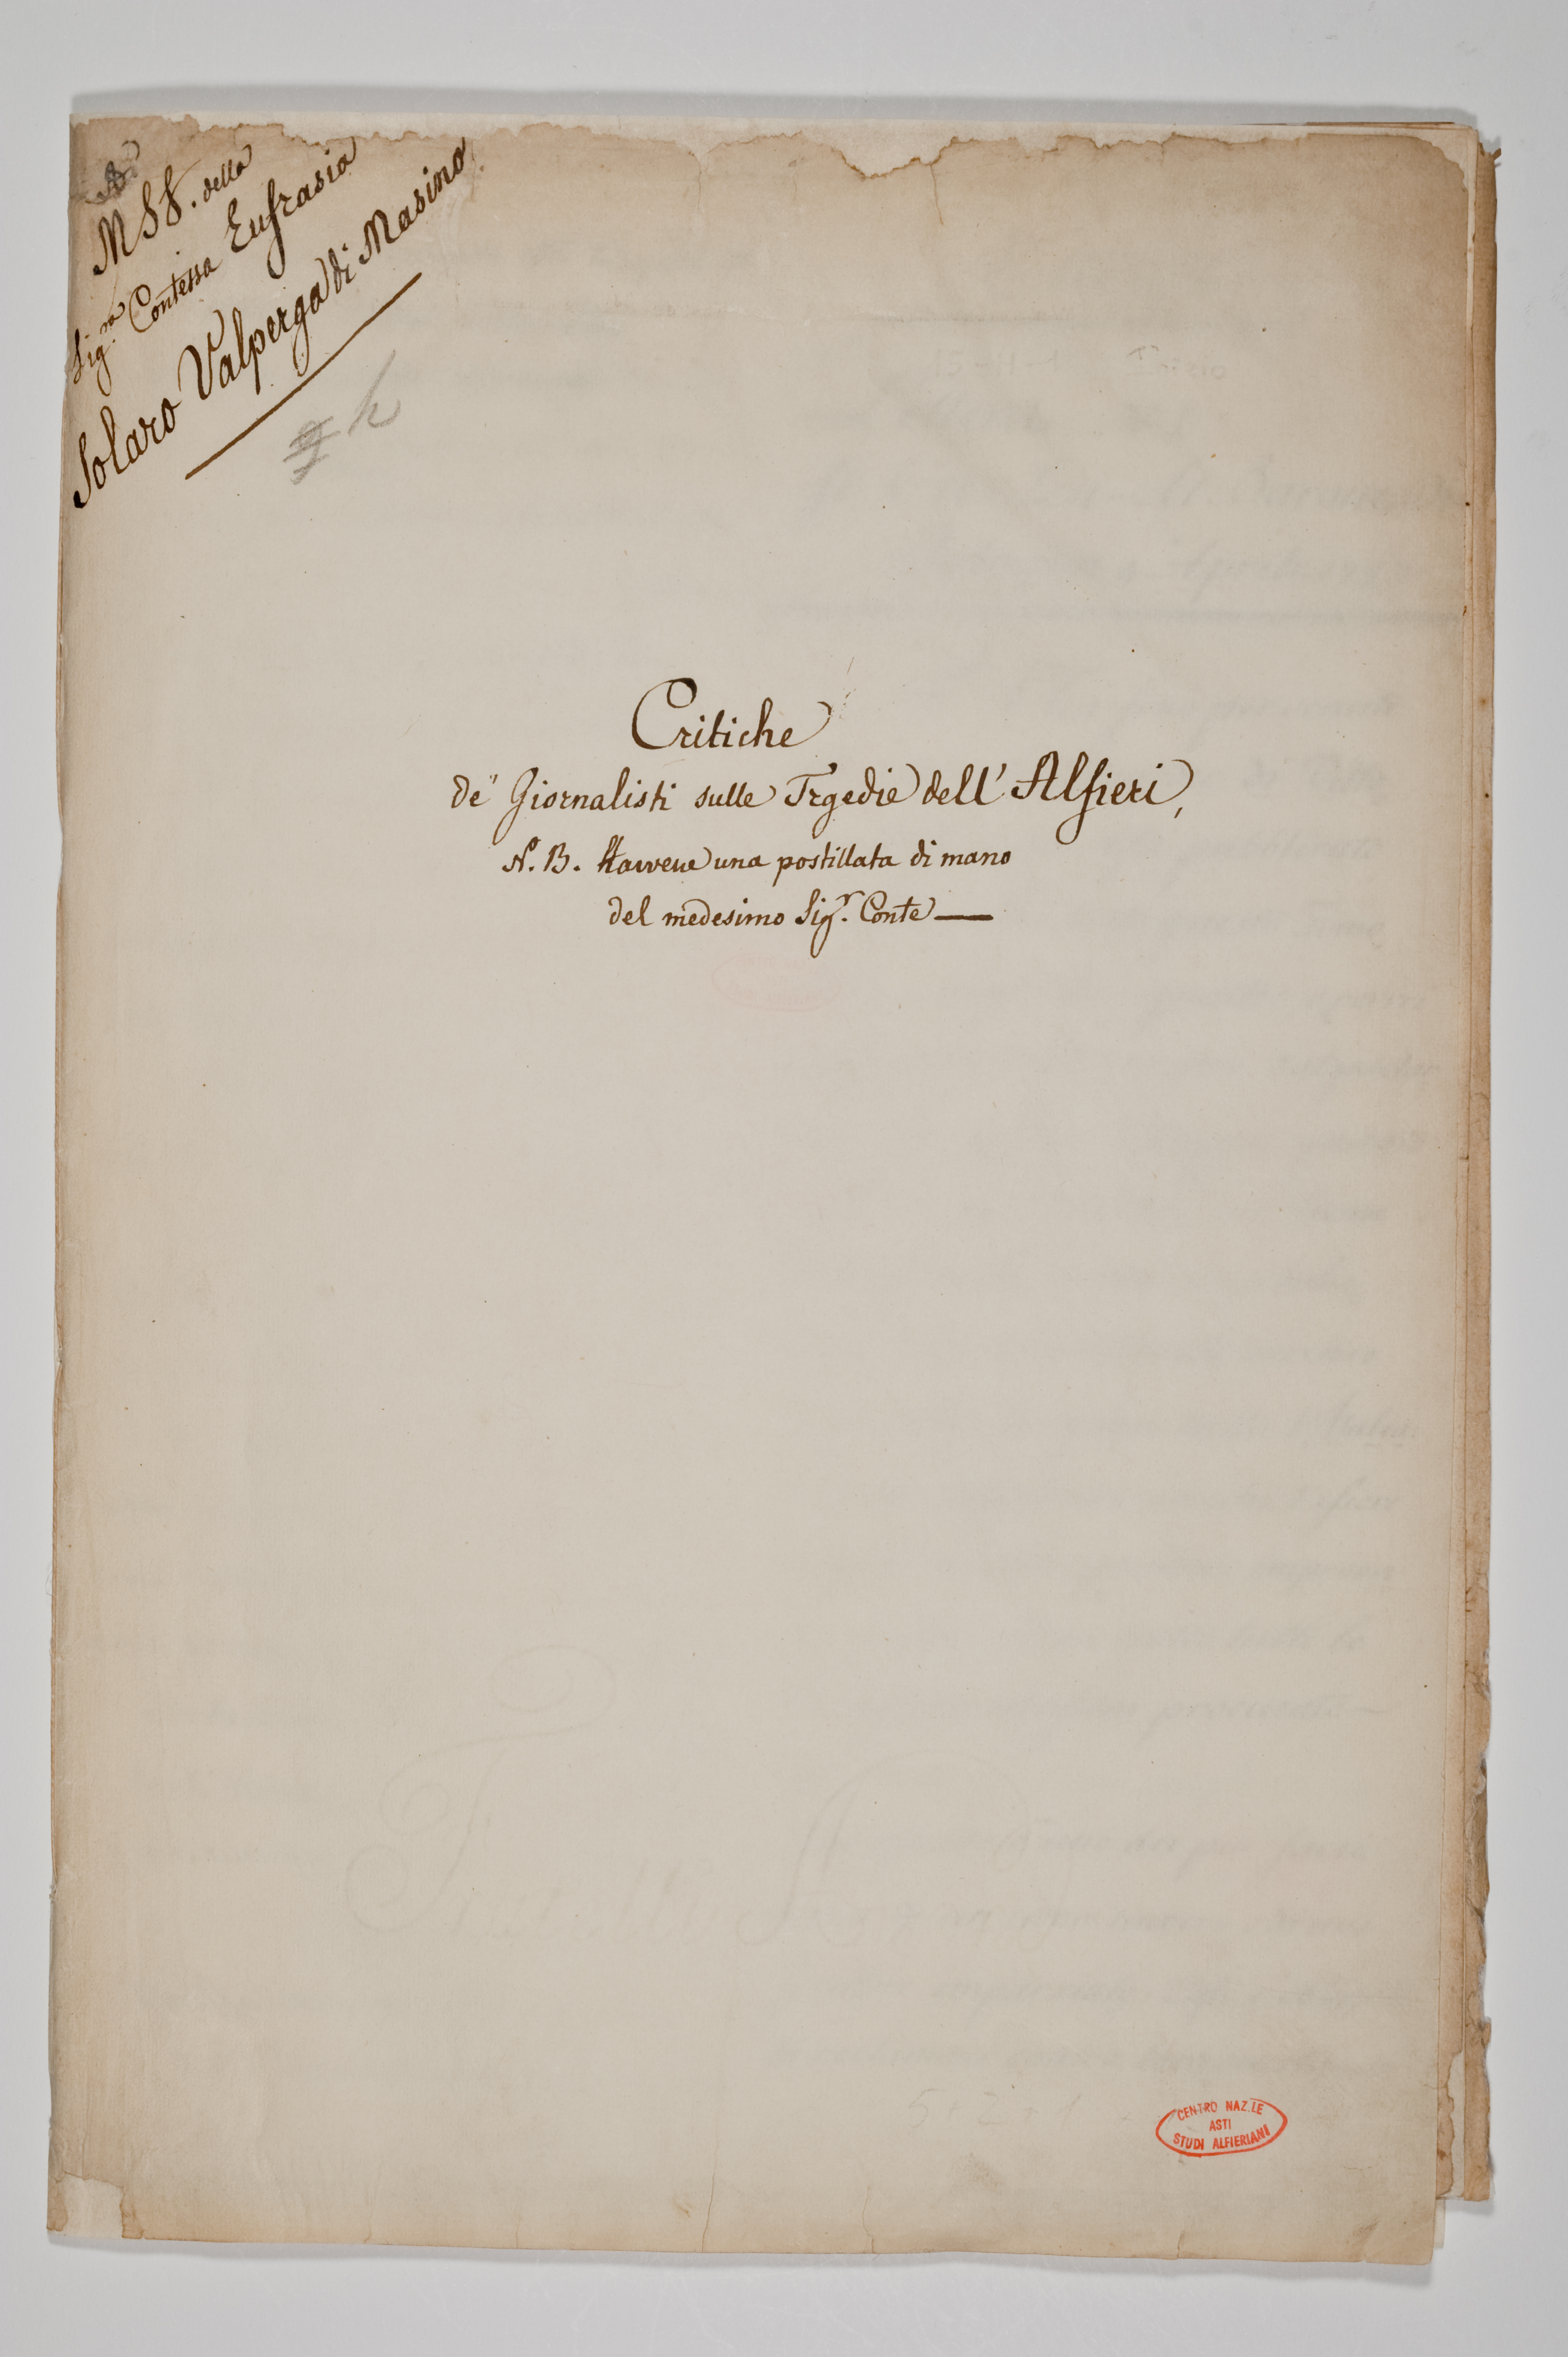 MSS. della
Sig.ra Contessa Eufrasia
Solaro Valperga di Masino
h
Critiche
de' Giornalisti sulle Trgedie dell' Alfieri,
N. B. Havvene una postillata di mano
del medesimo Sig.r Conte —
CENTRO NAZ.LE
ASTI
STUDI ALFIERIANI